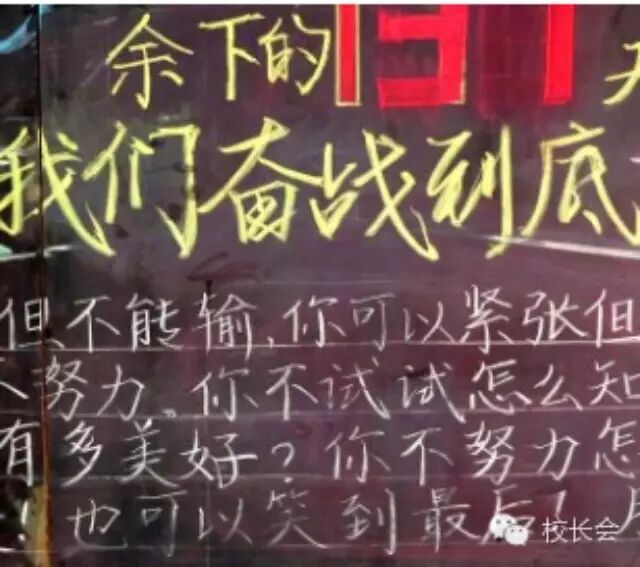 余下的137天
我们奋战到底
但不能输,你可以紧张但
努力、你不试试怎么知
有多美好?你不努力怎
!也可以笑到最后!
校长会